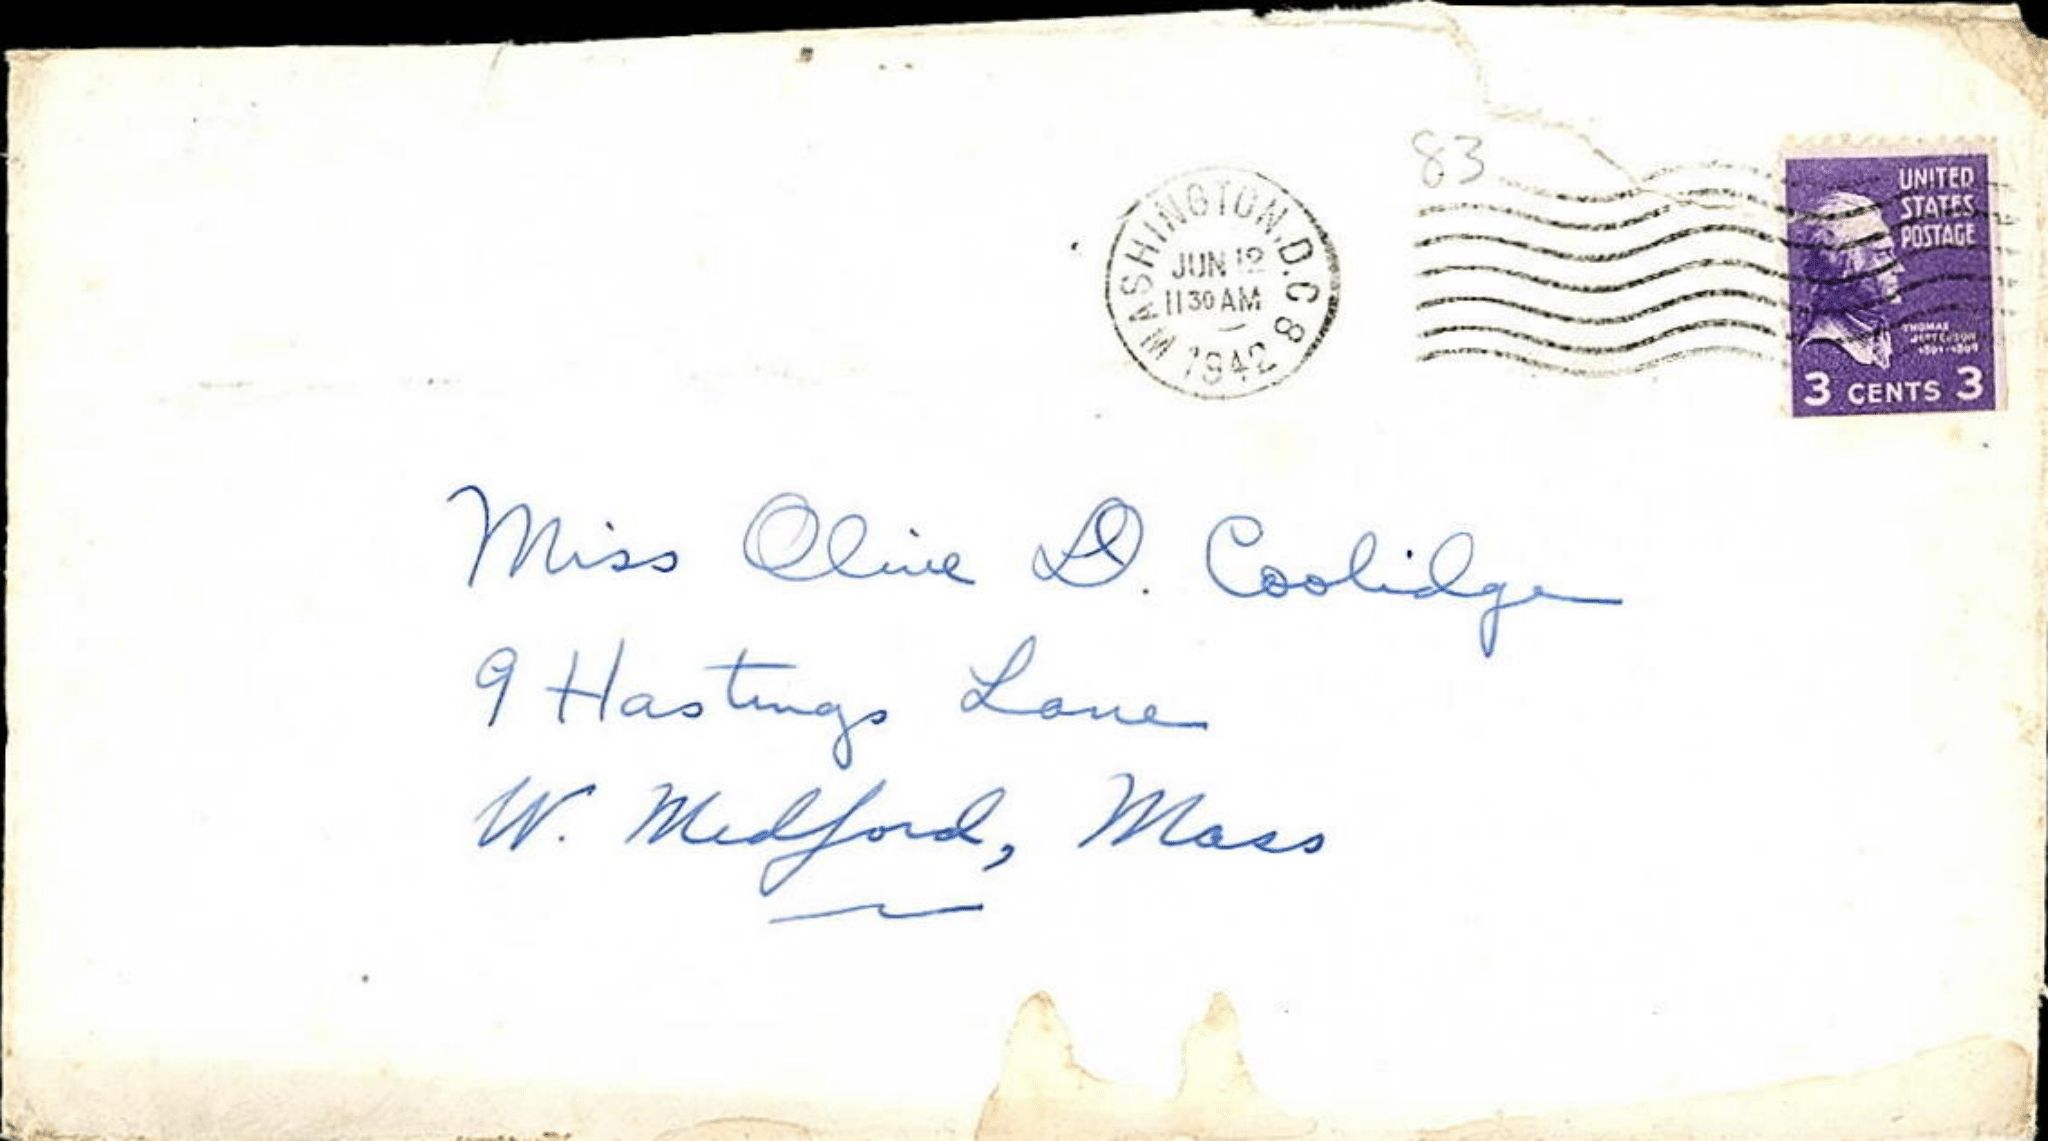 83
WASHINGTON, D.C. 8
JUN 12
11 30 AM
1942
UNITED
STATES
POSTAGE
THOMAS
JEFFERSON
1801-1809
3 CENTS 3
Miss Olive D. Coolidge
9 Hastings Lane
W. Medford, Mass